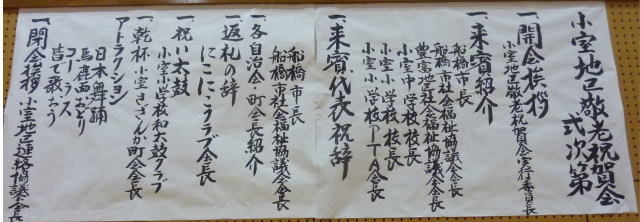 小室地区敬老祝賀会
式次第
一、開会挨拶
小室地区敬老祝賀会実行委員長
一、来賓紹介
船橋市長
船橋市社会福祉協議会会長
豊富地区社会福祉協議会会長
小室中学校校長
小室小学校校長
小室小学校PTA会長
一、来賓代表祝辞
船橋市長
船橋市社会福祉協議会会長
一、各自治会・町会長紹介
一、返礼の辞
にこにこクラブ会長
一、祝い太鼓
小室小学校和太鼓クラブ
一、乾杯 小室さざんか町会会長
アトラクション
日本舞踊
馬鹿面おどり
コーラス
皆で歌おう
一、閉会挨拶 小室地区連絡協議会会長